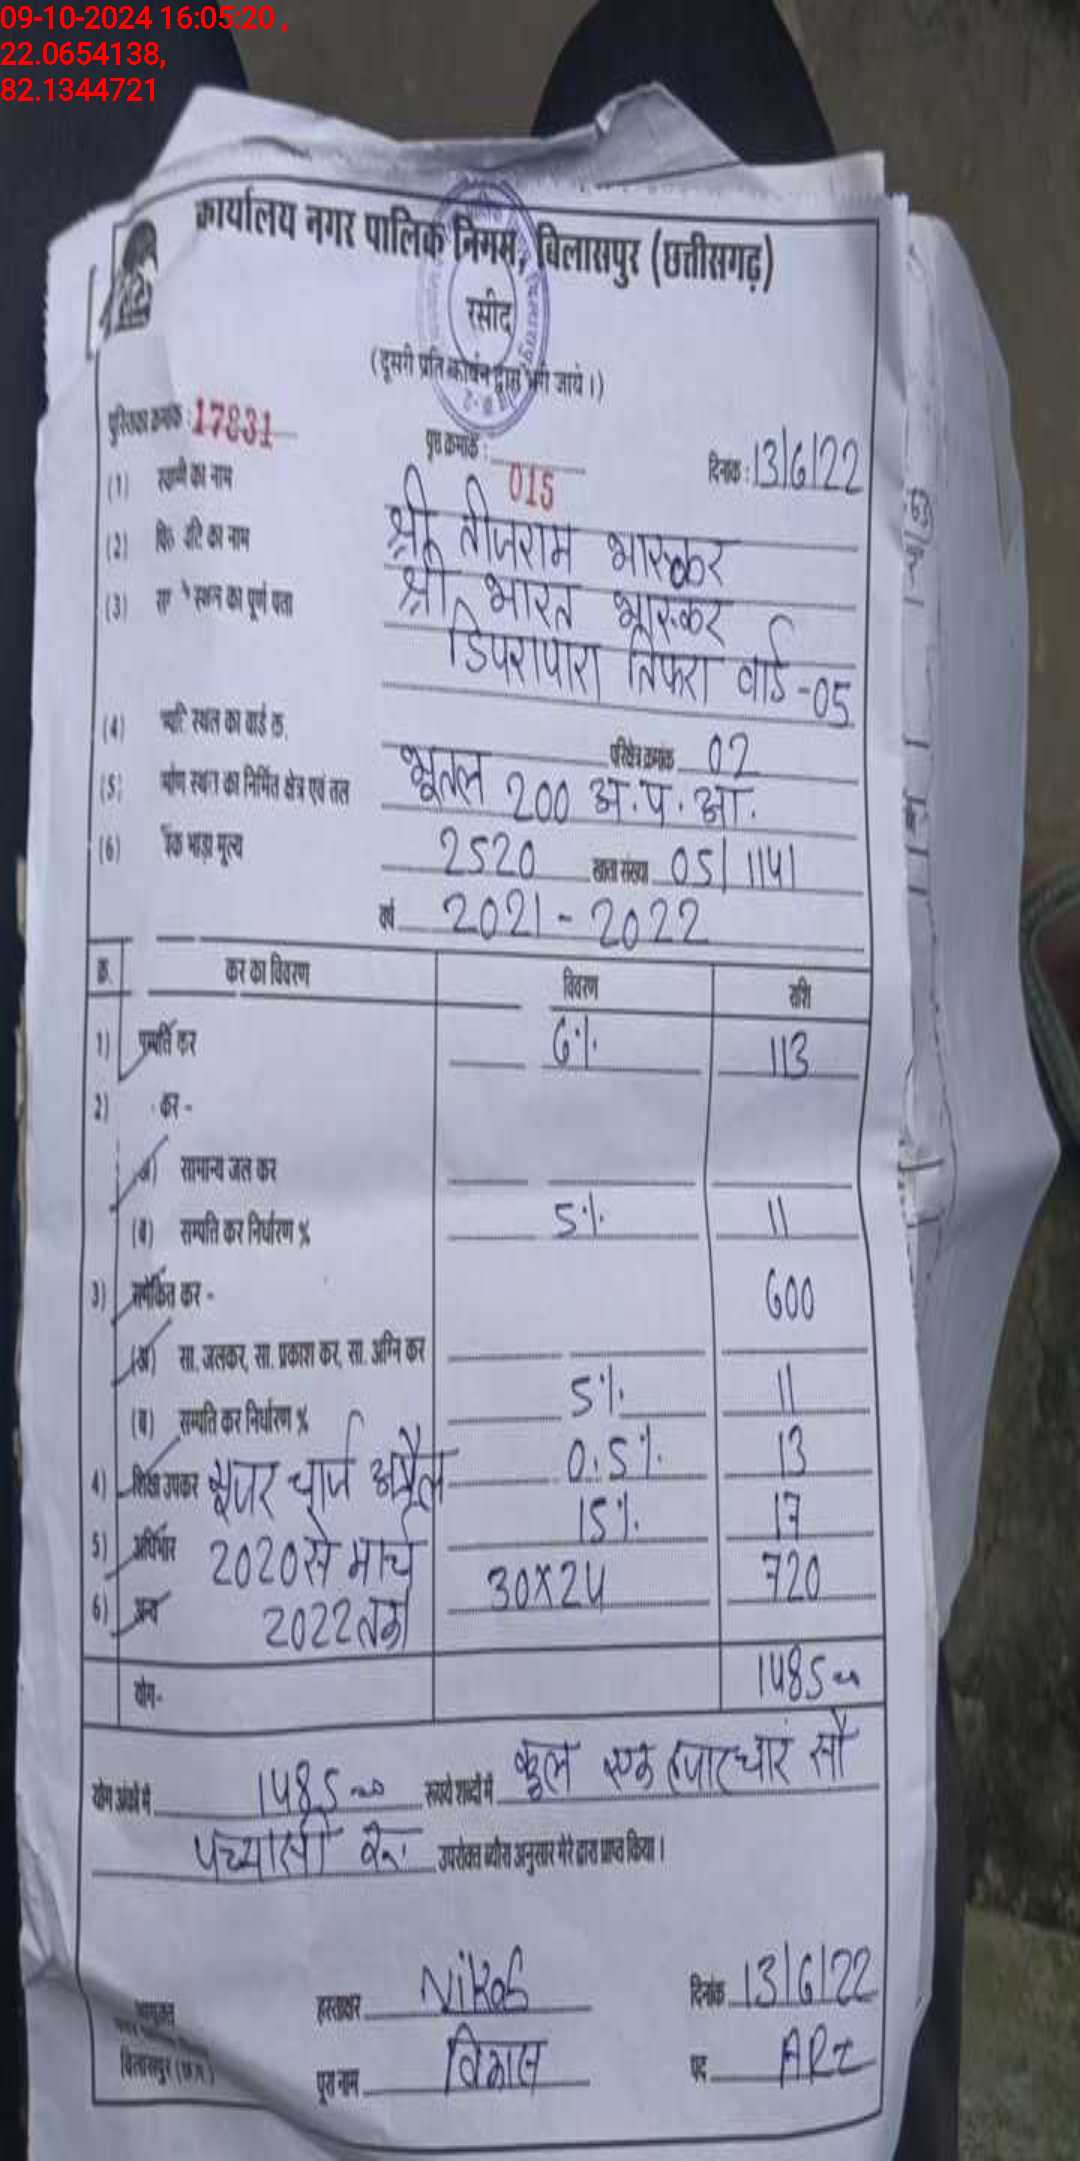 09-10-2024 16:05:20 ,
22.0654138,
82.1344721
कार्यालय नगर पालिक निगम, बिलासपुर (छत्तीसगढ़)
रसीद
(दूसरी प्रति कार्बन द्वारा भरी जाये।)
पुस्तिका क्रमांक : 17831 पृष्ठ क्रमांक : 015 दिनांक : 13/6/22
(1) स्वामी का नाम श्री तीजराम भास्कर
(2) का नाम श्री भारत भास्कर
(3) स्थल का पूर्ण पता डिपरापारा तिफरा वार्ड-05
(4) स्थल का वार्ड क्र. परिक्षेत्र क्रमांक 02
(5) स्थल का निर्मित क्षेत्र एवं तल भूतल 200 अ.प.आ.
(6) भाड़ा मूल्य 2520 खाता संख्या 05/1141
वर्ष 2021-2022
क्र. कर का विवरण विवरण राशि
1) सम्पत्ति कर 6% 113
2) कर -
(अ) सामान्य जल कर
(ब) सम्पत्ति कर निर्धारण % 5% 11
3) समेकित कर - 600
(अ) सा. जलकर, सा. प्रकाश कर, सा. अग्नि कर
(ब) सम्पत्ति कर निर्धारण % 5% 11
4) शिक्षा उपकर 0.5% 13
5) अधिभार 15% 17
6) अन्य यूजर चार्ज अप्रैल 2020 से मार्च 2022 तक 30x24 720
योग- 1485
योग अंकों में 1485 रूपये शब्दों में कुल एक हजार चार सौ
पच्यासी रू. उपरोक्त ब्यौरा अनुसार मेरे द्वारा प्राप्त किया।
आयुक्त हस्ताक्षर दिनांक 13/6/22
बिलासपुर (छ.ग.) पूरा नाम विकास पद ARI